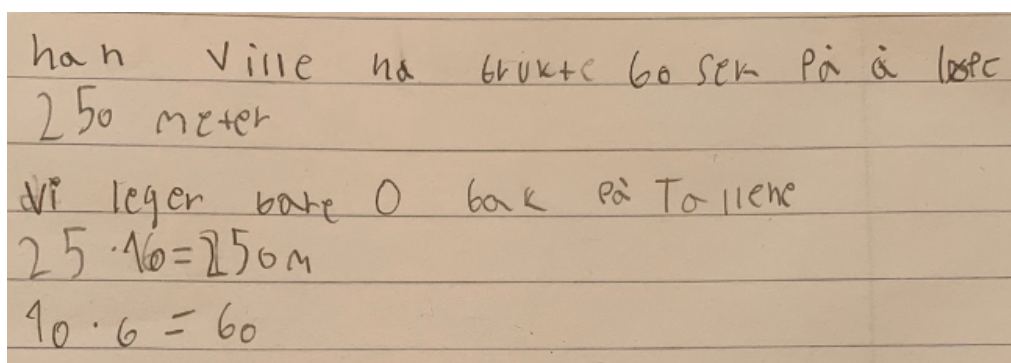 han ville ha brukte 60 sek på å løpe
250 meter
Vi leger bare 0 bak på Tallene
25 · 10 = 250m
10 · 6 = 60